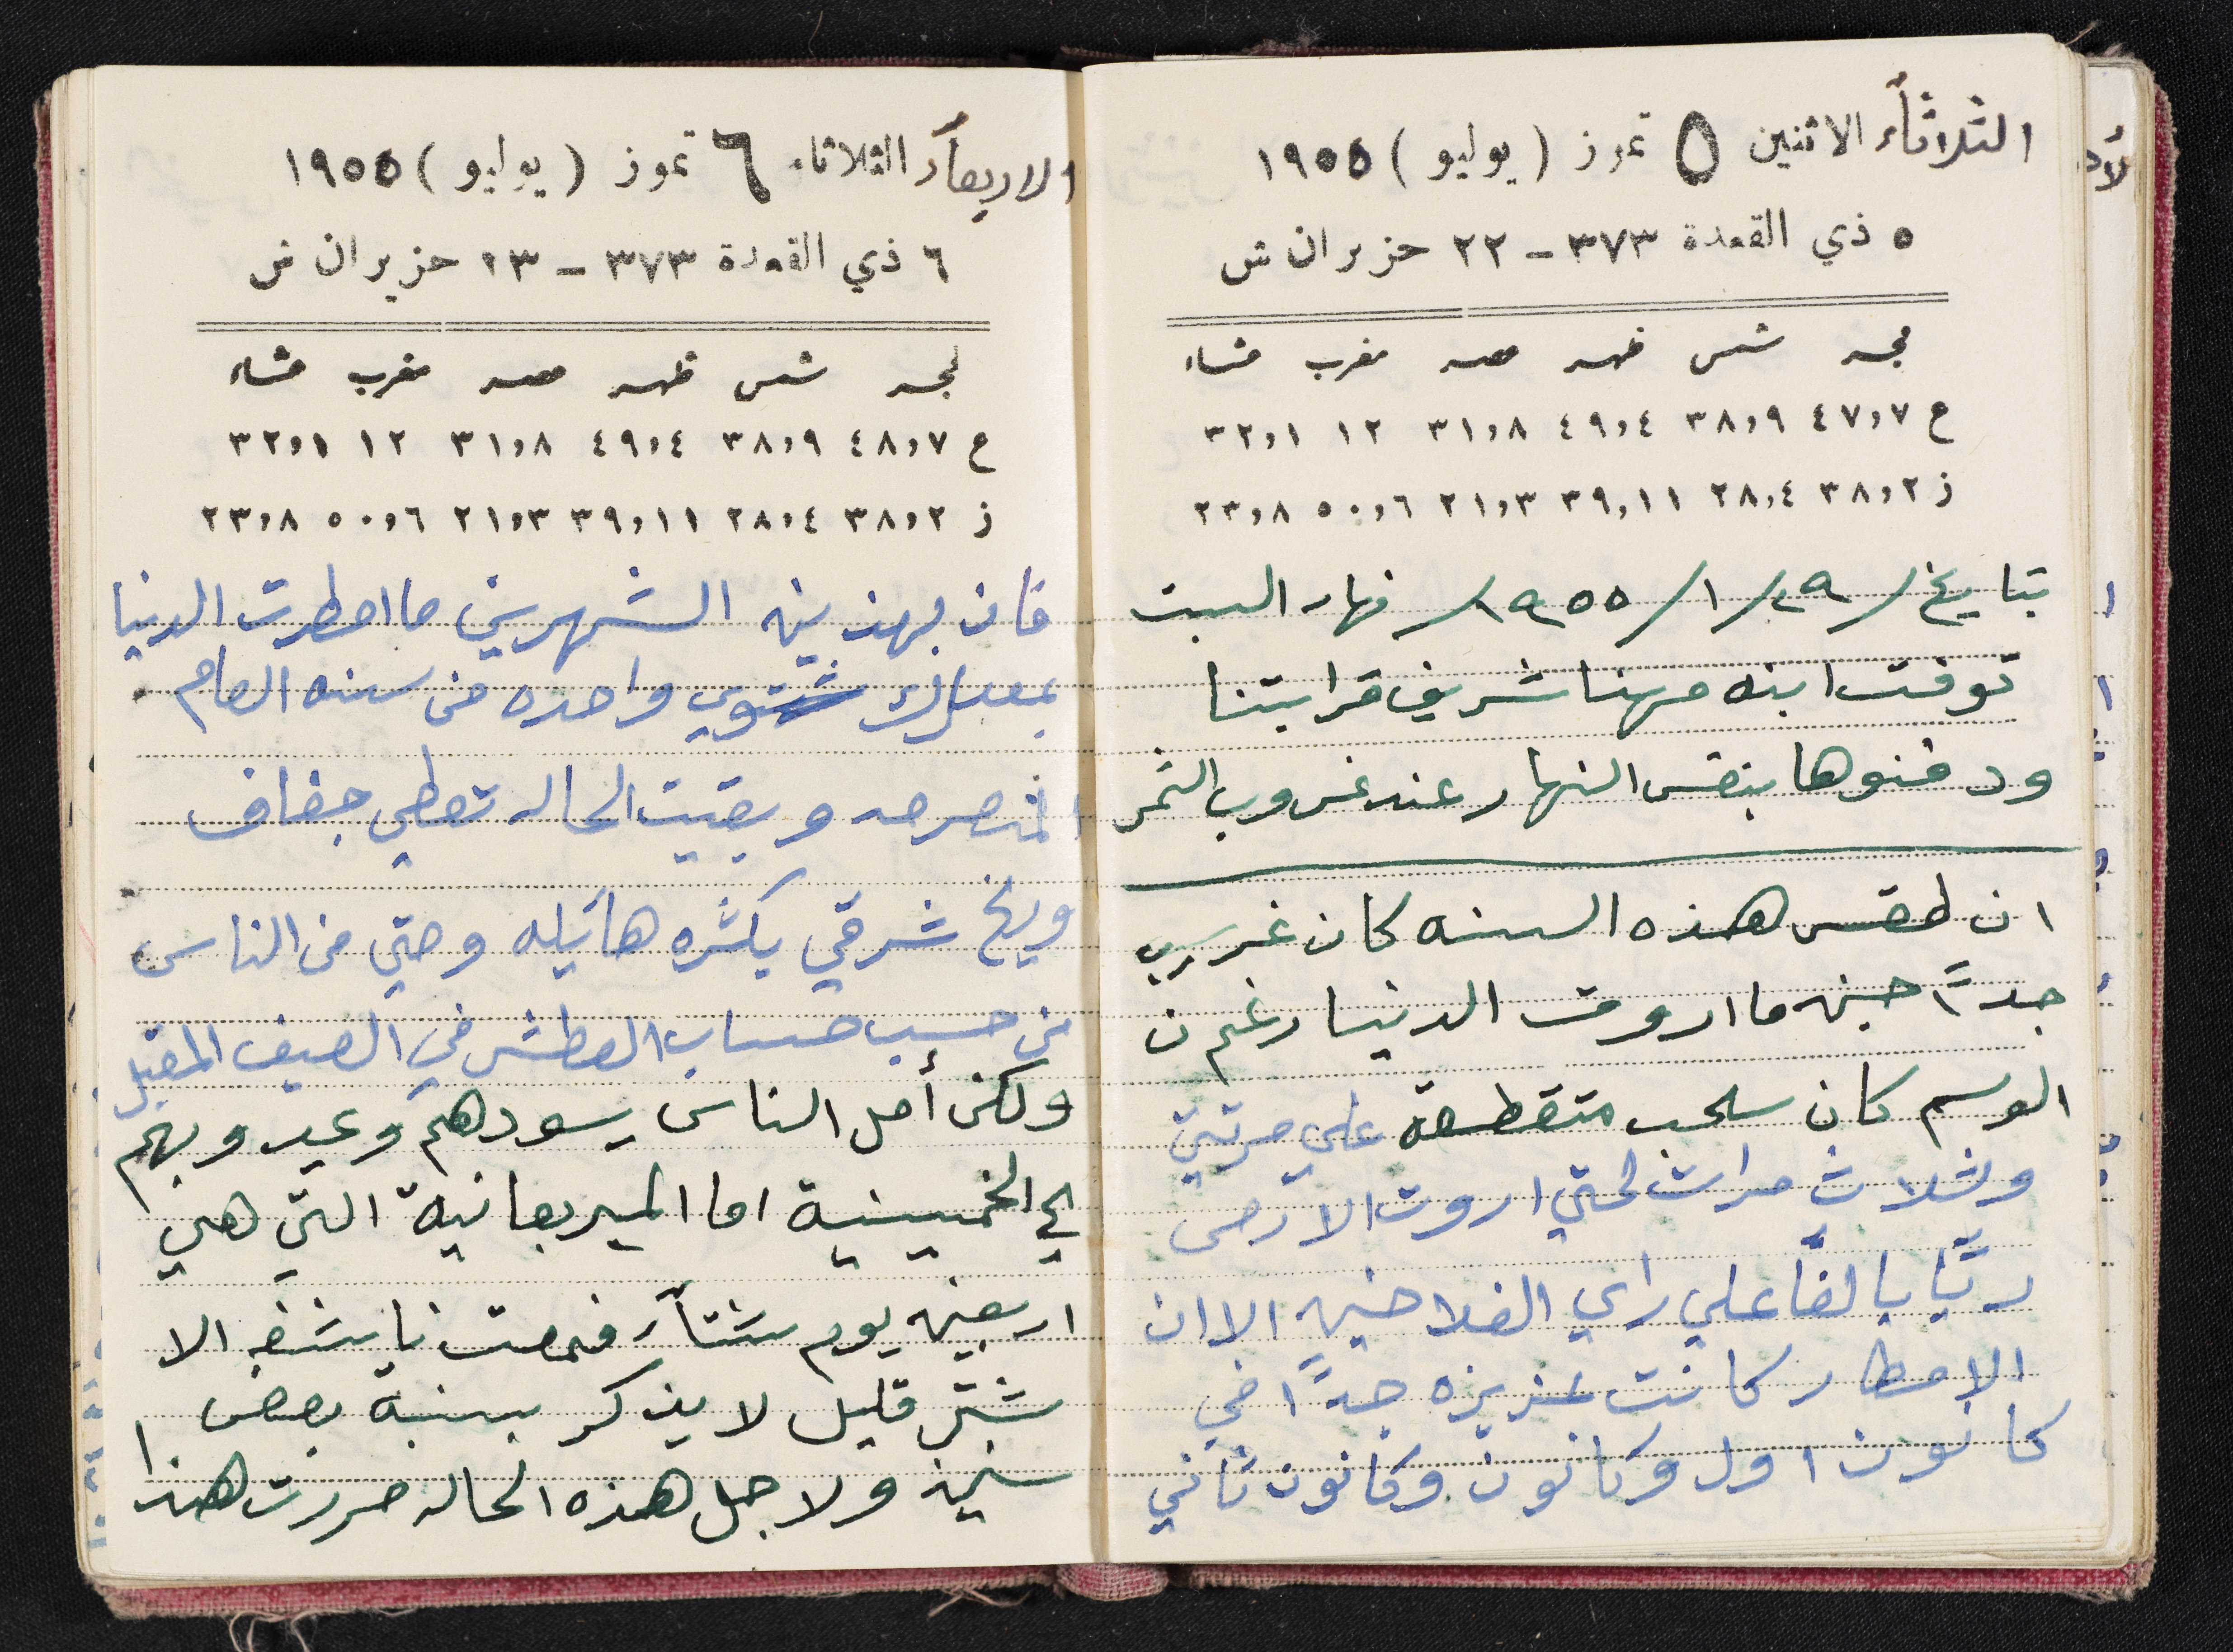 الثلاثاء الاثنين ٥ تموز (يوليو) ١٩٥٥
٥ ذي القعدة ٣٧٣ - ٢٢ حزيران ش
فجر شمس ظهر عصر مغرب عشاء
ع ٤٧,٧ ٣٨,٩ ٤٩,٤ ٣١,٨ ١٢ ٣٢,١
ز ٣٨,٢ ٢٨,٤ ٣٩,١١ ٢١,٣ ٥٠,٦ ٢٣,٨
بتاريخ / ٢٩ / ١ / ١٩٥٥ / نهار السبت
توفت ابنه مهنا شريف قرابتنا
ودفنوها بنفس النهار عند غروب الشمس
ان طقس هذه السنه كان غريب
جداً حين ما اروت الدنيا رغم ن
الوسم كان سحب متقطعة على مرتين
وثلاث مرات لحتي اروت الارض
ريّا بالغاً على راي الفلاحين الا ان
الامطار كانت غزيزه جداً في
كانون اول وكانون وكانون ثاني
الاربعاء الثلاثاء ٦ تموز (يوليو) ١٩٥٥
٦ ذي القعدة ٣٧٣ - ١٣ حزيران ش
فجر شمس ظهر عصر مغرب عشاء
ع ٤٨,٧ ٣٨,٩ ٤٩,٤ ٣١,٨ ١٢ ٣٢,١
ز ٣٨,٢ ٢٨,٤ ٣٩,١١ ٢١,٣ ٥٠,٦ ٢٣,٨
فان بهذينه الشهرين ما امطرت الدنيا
شتوي واحده من سنه العام
المنصرمه وبقيت الحاله تعطي جفاف
وريح شرقي بكثره هائيله وحتي من الناس
من حسب حساب العطش في الصيف المقبل
ولكن أمل الناس بسودهم وعيدوبهم
الي الخمسينية اما الميربعانية التي هي
اربعين يوم شتاء فمعت نايشفه الا
شتى قليل لا يذكر بسنبة بعض
سنين ولاجل هذه الحاله حررت هذا